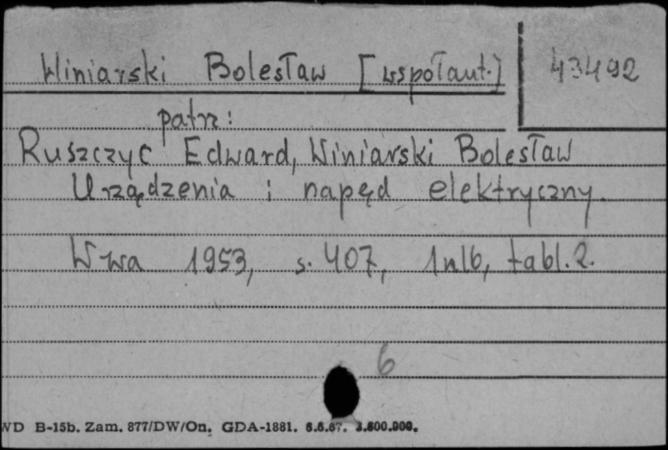 Winiarski Bolesław [współaut.] 43492
patrz:
Ruszczyc Edward, Winiarski Bolesław
Urządzenia i napęd elektryczny.
W-wa 1953, s. 407, 1nlb, tabl. 2.
6
WD B-15b. Zam. 877/DW/On. GDA-1881. 6.6.67. 3.600.000.